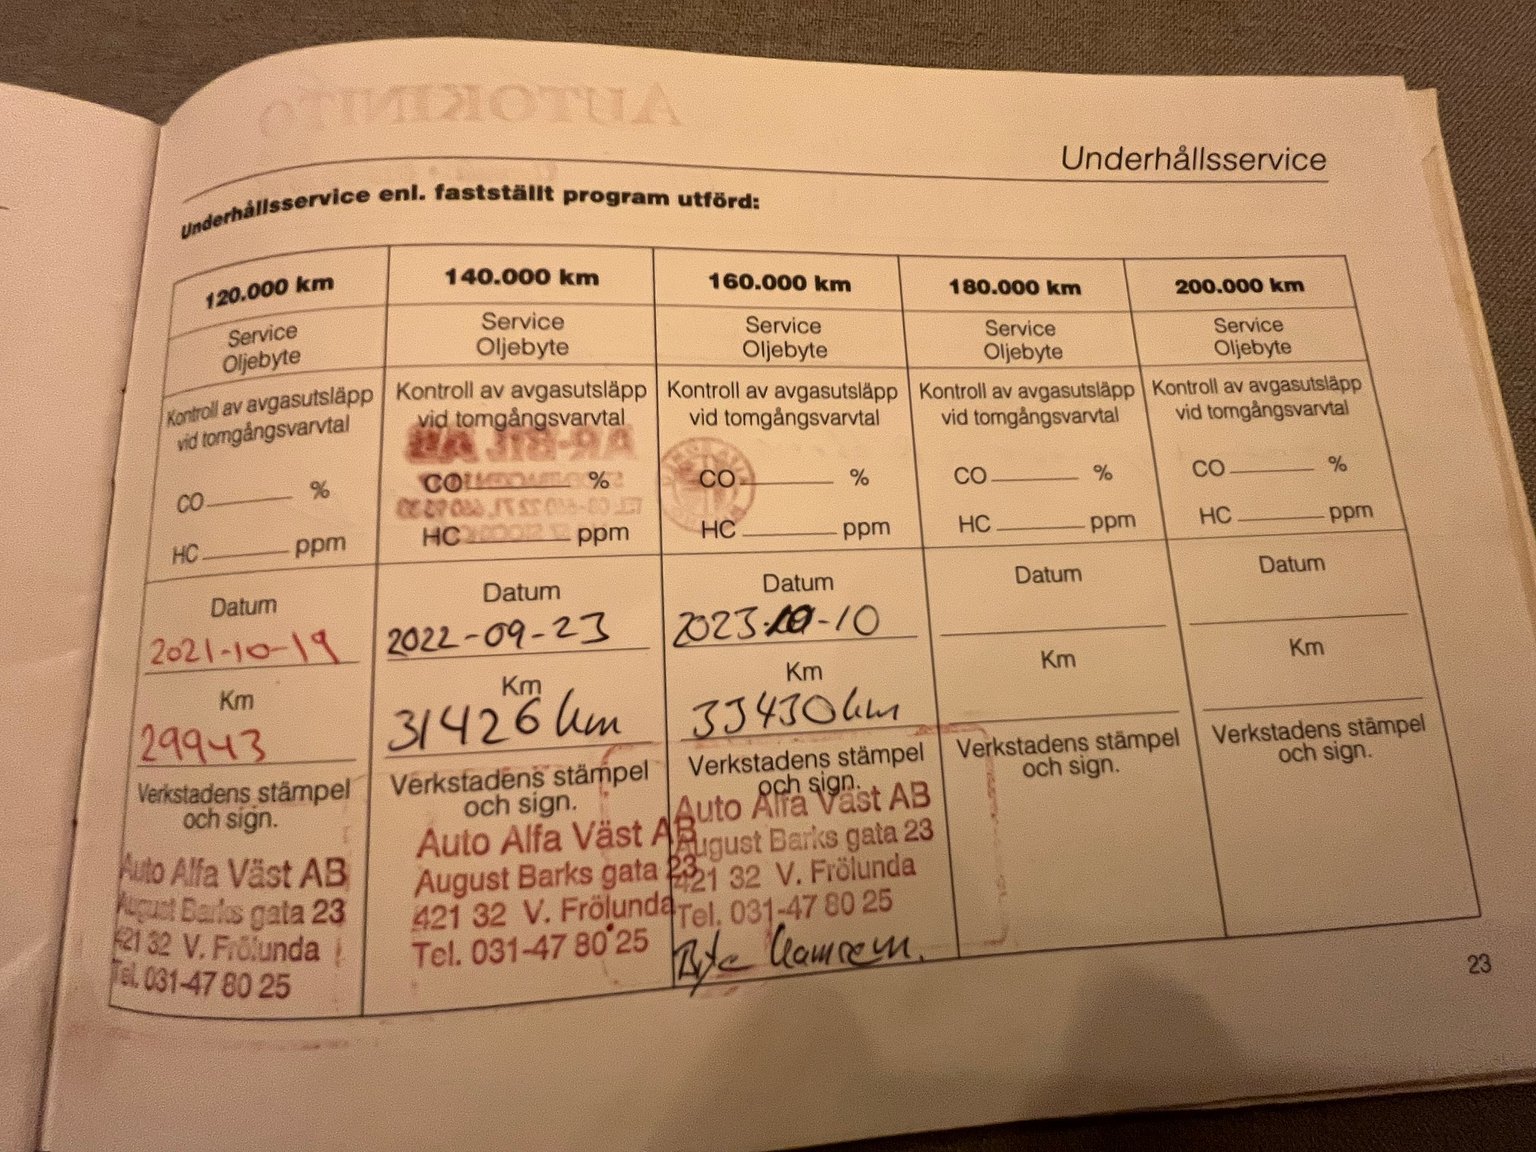 Underhållsservice
Underhållsservice enl. fastställt program utförd:
120.000 km
Service
Oljebyte
Kontroll av avgasutsläpp
vid tomgångsvarvtal
CO %
HC ppm
Datum
2021-10-19
Km
29943
Verkstadens stämpel
och sign.
Auto Alfa Väst AB
August Barks gata 23
421 32 V. Frölunda
Tel. 031-47 80 25
140.000 km
Service
Oljebyte
Kontroll av avgasutsläpp
vid tomgångsvarvtal
CO %
HC ppm
Datum
2022-09-23
Km
31426 km
Verkstadens stämpel
och sign.
Auto Alfa Väst AB
August Barks gata 23
421 32 V. Frölunda
Tel. 031-47 80 25
160.000 km
Service
Oljebyte
Kontroll av avgasutsläpp
vid tomgångsvarvtal
CO %
HC ppm
Datum
2023-10-10
Km
33430 km
Verkstadens stämpel
och sign.
Auto Alfa Väst AB
August Barks gata 23
421 32 V. Frölunda
Tel. 031-47 80 25
Byte kamrem.
180.000 km
Service
Oljebyte
Kontroll av avgasutsläpp
vid tomgångsvarvtal
CO %
HC ppm
Datum
Km
Verkstadens stämpel
och sign.
200.000 km
Service
Oljebyte
Kontroll av avgasutsläpp
vid tomgångsvarvtal
CO %
HC ppm
Datum
Km
Verkstadens stämpel
och sign.
23